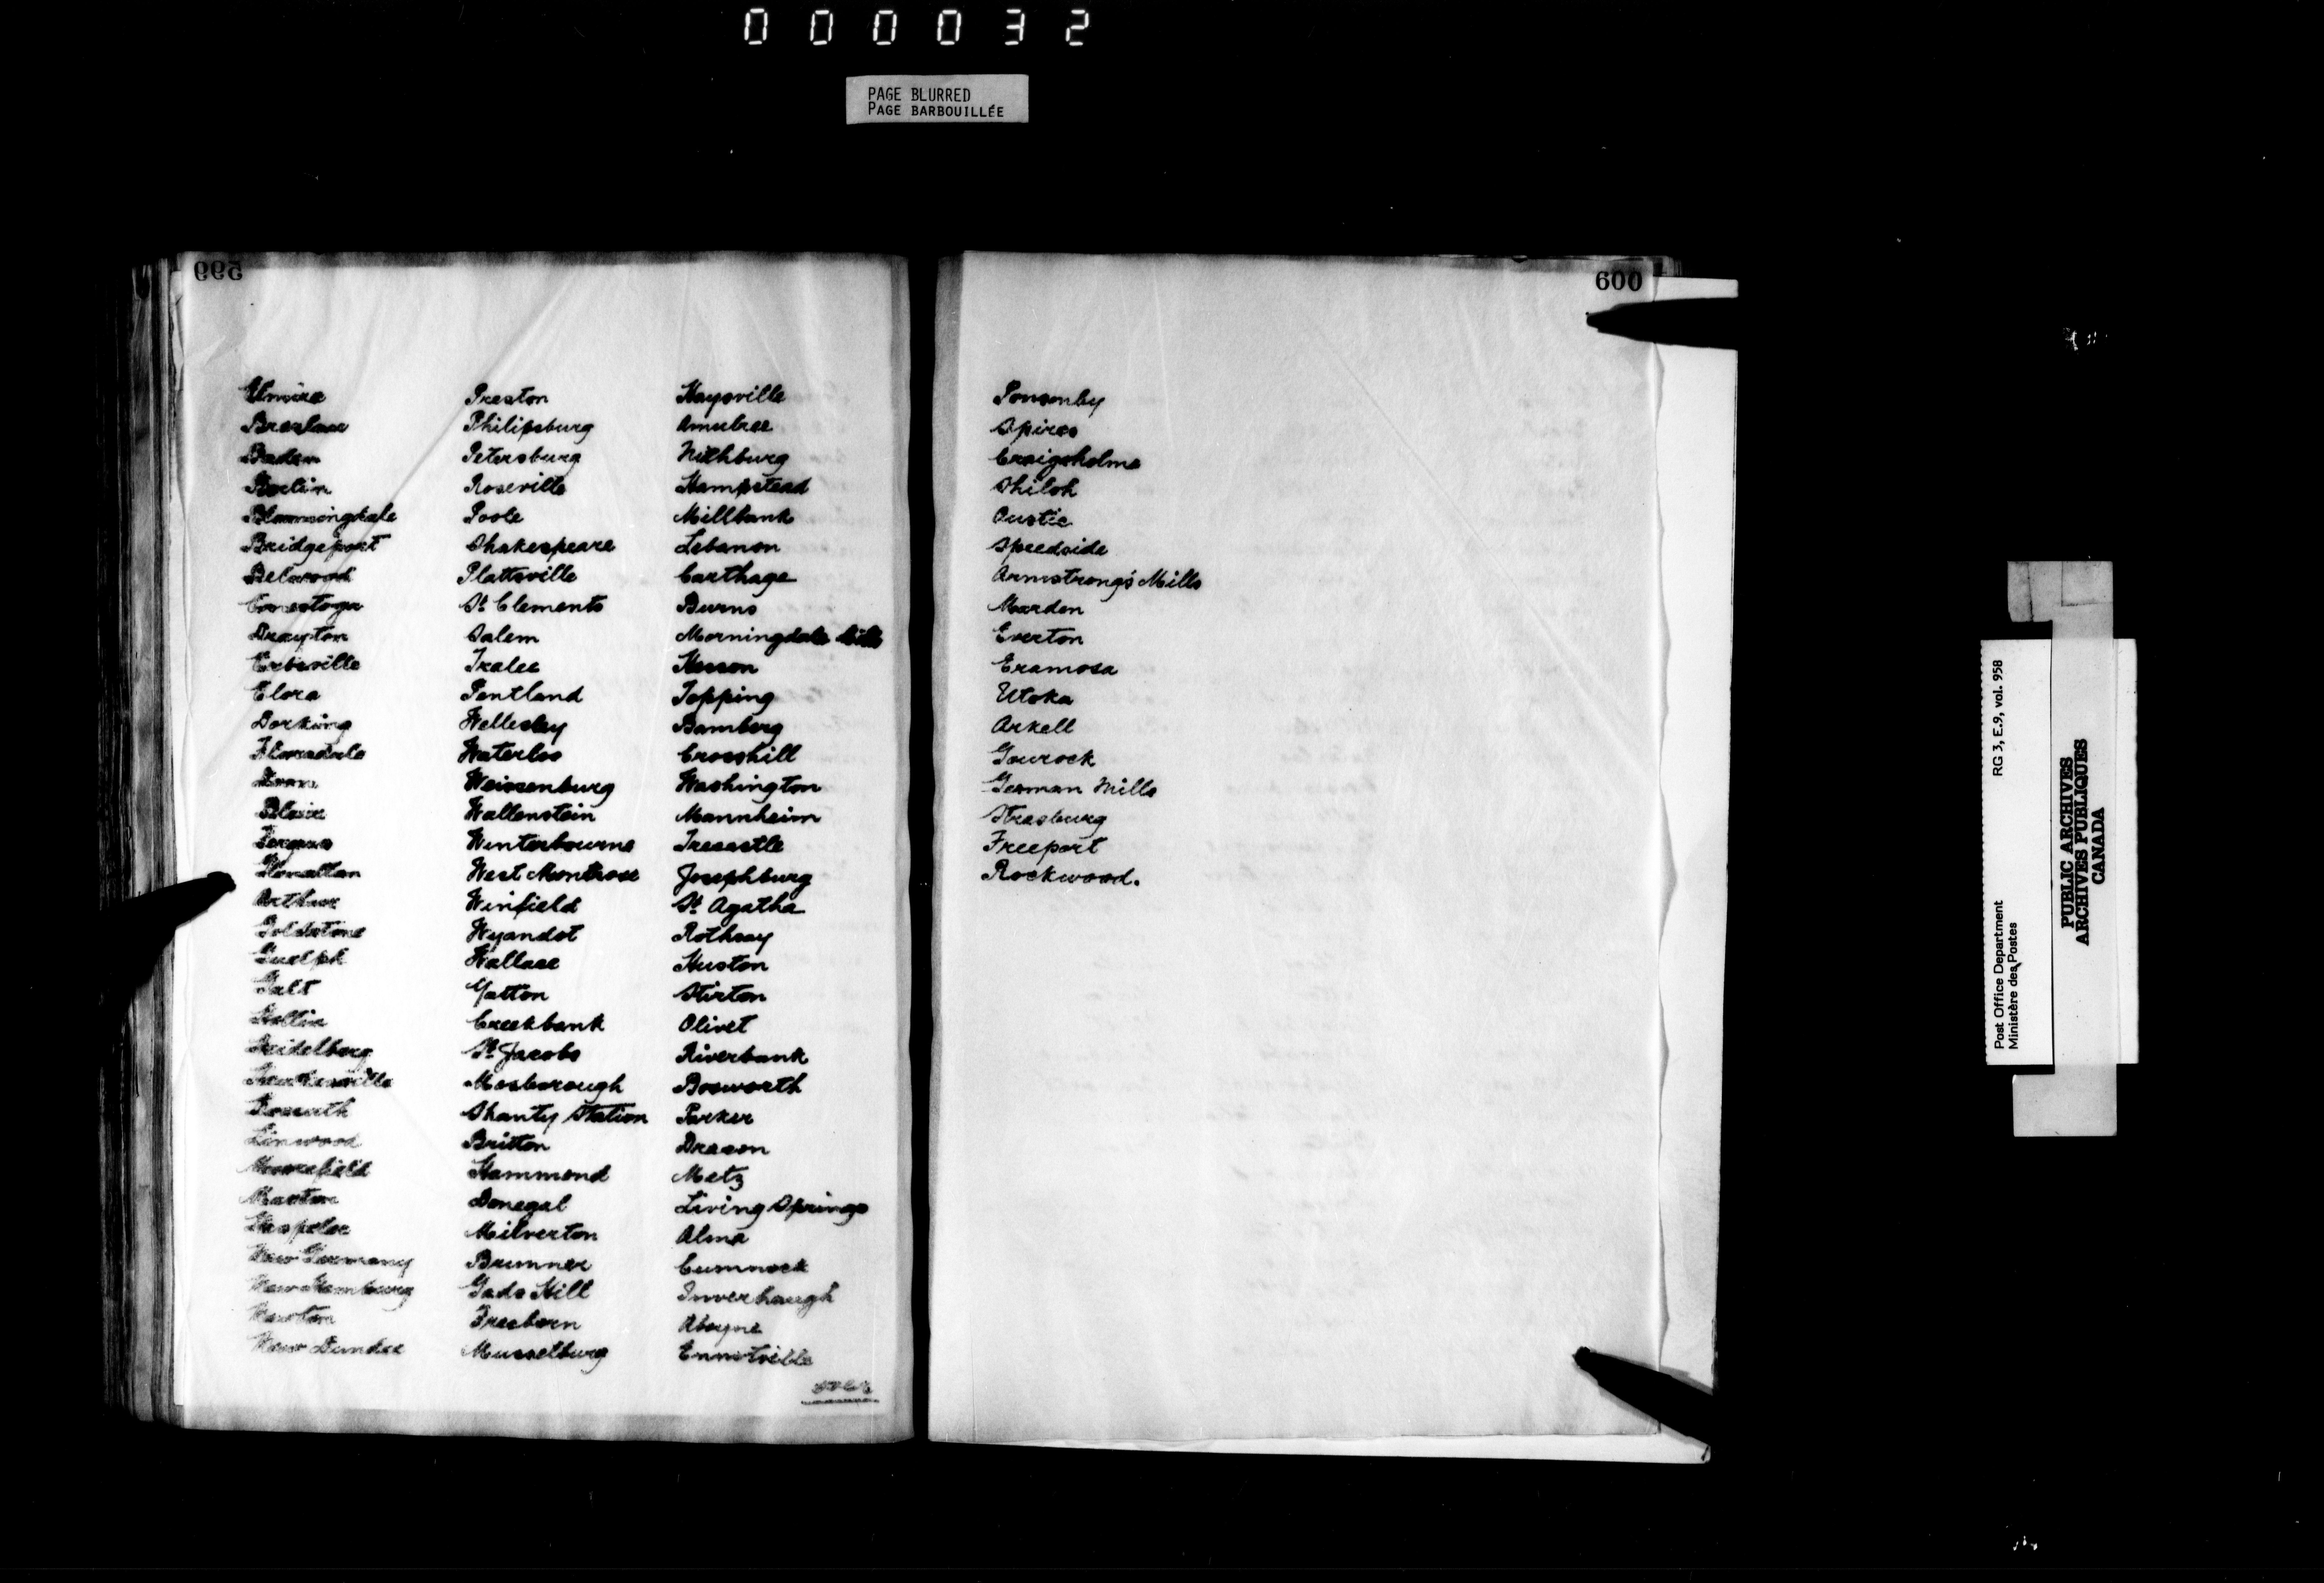 000032
PAGE BLURRED
PAGE BARBOUILLÉE
599
Elmira
Breslau
Baden
Berlin
Bloomingdale
Bridgeport
Belwood
Conestogo
Drayton
Erbsville
Elora
Dorking
Floradale
Doon
Blair
Fergus
Glenallan
Arthur
Goldstone
Guelph
Galt
Hollin
Heidelberg
Hawkesville
Kossuth
Linwood
Moorefield
Maryton
Hespeler
New Germany
New Hamburg
Newton
New Dundee
Preston
Philipsburg
Petersburg
Roseville
Poole
Shakespeare
Plattsville
St Clements
Salem
Tralee
Pentland
Wellesley
Waterloo
Weissenburg
Wallenstein
Winterbourne
West Montrose
Winfield
Wyandot
Wallace
Yatton
Creekbank
St Jacobs
Mosborough
Shanty Station
Britton
Hammond
Donegal
Milverton
Brunner
Gads Hill
Freeborn
Musselburg
Haysville
Amulree
Nithburg
Hampstead
Millbank
Lebanon
Carthage
Burns
Morningdale Mills
Hesson
Topping
Bamberg
Crosshill
Washington
Mannheim
Trecastle
Josephburg
St Agatha
Rothsay
Huston
Stirton
Olivet
Riverbank
Bosworth
Parker
Dracon
Metz
Living Springs
Alma
Cumnock
Inverhaugh
Aboyne
Ennotville
600
Ponsonby
Spires
Craigsholme
Shiloh
Oustic
Speedside
Armstrong's Mills
Marden
Everton
Eramosa
Utoka
Arkell
Gourock
German Mills
Strasburg
Freeport
Rockwood.
RG 3, E.9, vol. 958
Post Office Department
Ministère des Postes
PUBLIC ARCHIVES
ARCHIVES PUBLIQUES
CANADA